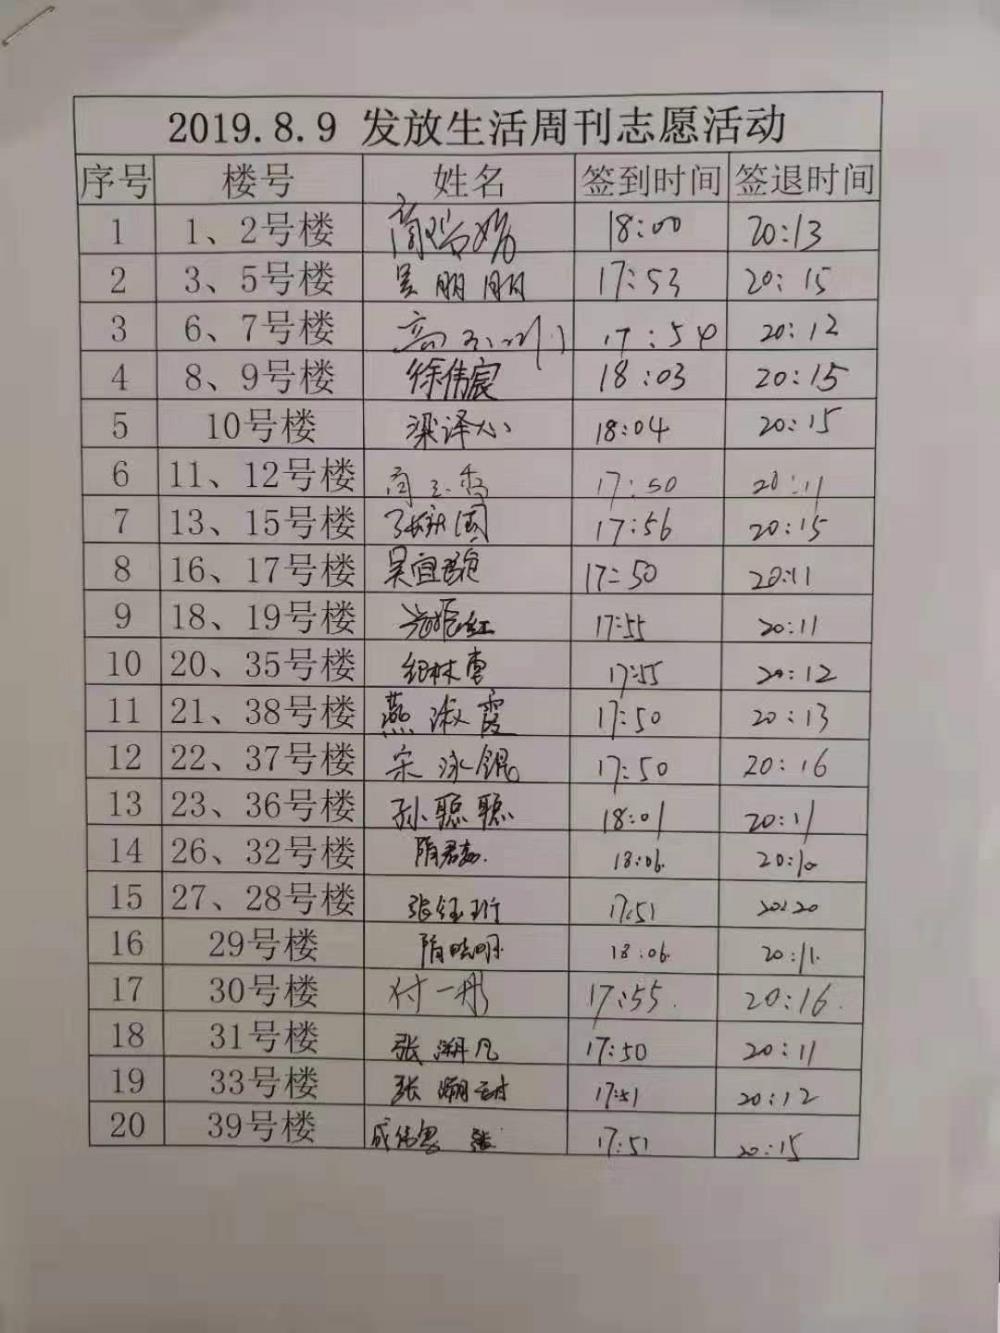 2019.8.9 发放生活周刊志愿活动
序号 楼号 姓名 签到时间 签退时间
1 1、2号楼 18:00 20:13
2 3、5号楼 吴朋朋 17:53 20:15
3 6、7号楼 17:54 20:12
4 8、9号楼 徐伟宸 18:03 20:15
5 10号楼 梁译心 18:04 20:15
6 11、12号楼 17:50 20:11
7 13、15号楼 17:56 20:15
8 16、17号楼 吴宜聪 17:50 20:11
9 18、19号楼 17:55 20:11
10 20、35号楼 17:55 20:12
11 21、38号楼 燕淑霞 17:50 20:13
12 22、37号楼 宋泳锟 17:50 20:16
13 23、36号楼 孙聪聪 18:01 20:11
14 26、32号楼 18:06 20:10
15 27、28号楼 张钰珩 17:51 20:20
16 29号楼 隋晓明 18:06 20:11
17 30号楼 付一彤 17:55 20:16
18 31号楼 张溯凡 17:50 20:11
19 33号楼 张 20:12
20 39号楼 17:51 20:15